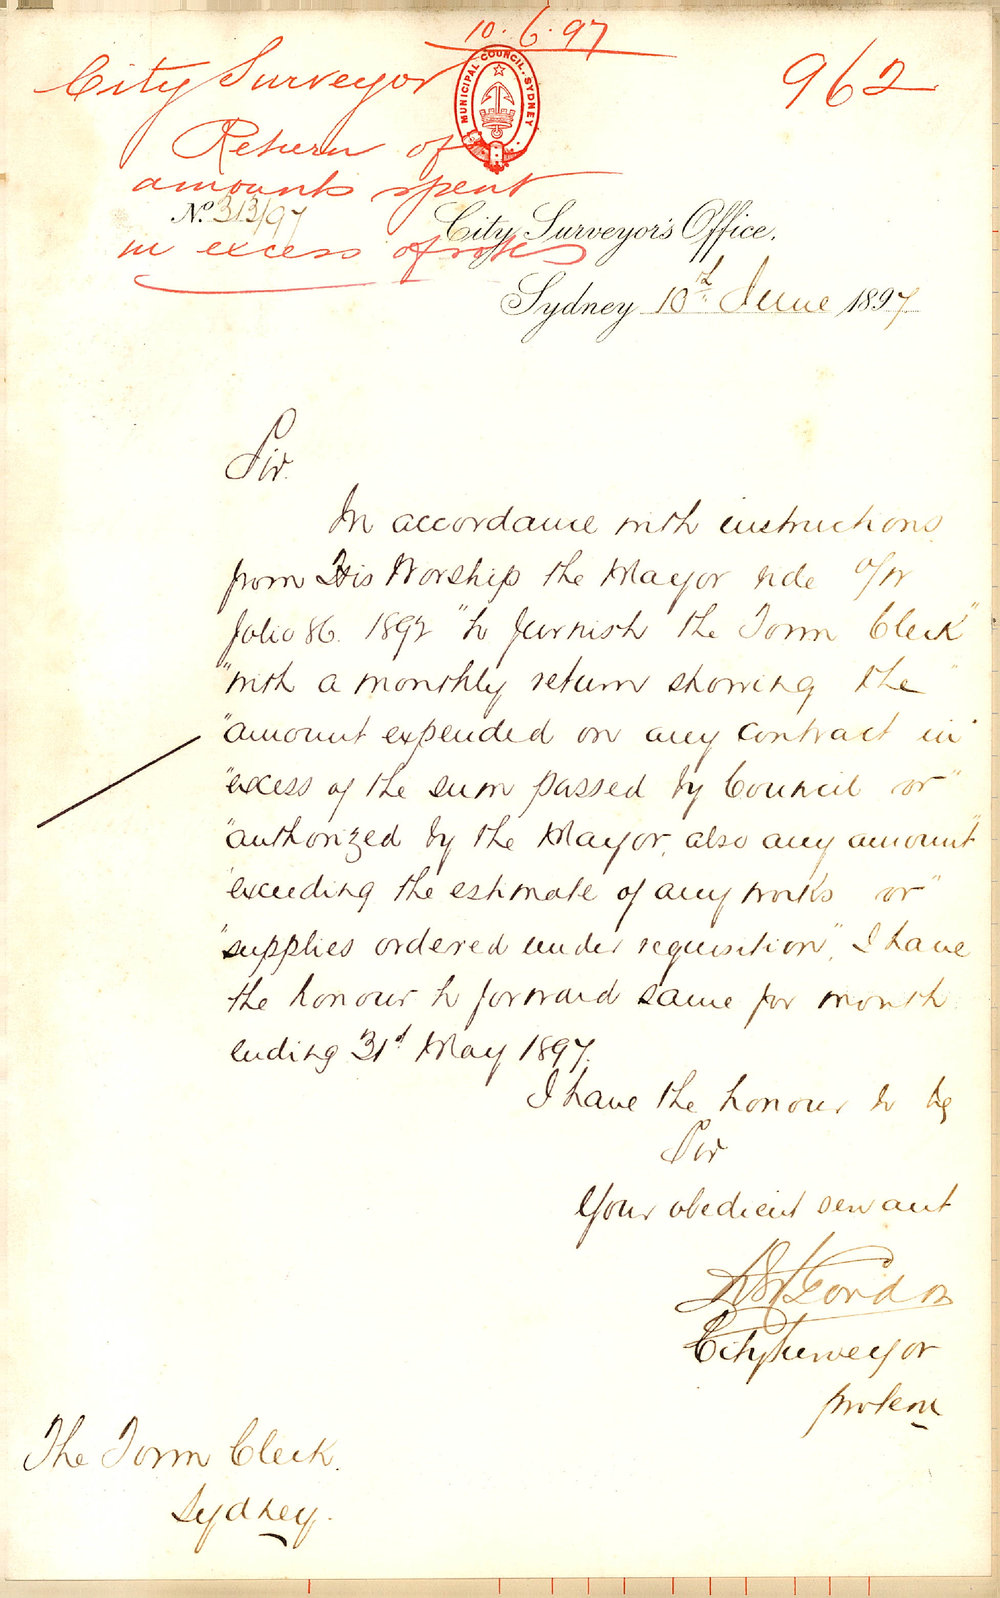 10.6.97
962
City Surveyor
MUNICIPAL COUNCIL. SYDNEY
Return of
amounts spent
in excess of votes
No. 313/97
City Surveyor's Office.
Sydney 10th June 1897
Sir.
In accordance with instructions
from His Worship the Mayor vide O/W
folio 86. 1892 "to furnish the Town Clerk"
"with a monthly return showing the"
"amount expended on any contract in"
"excess of the sum passed by Council or"
"authorized by the Mayor, also any amount"
"exceeding the estimate of any works or"
"supplies ordered under requisition", I have
the honour to forward same for month
ending 31st May 1897.
I have the honour to be
Sir
Your obedient servant
Gordon
City Surveyor
pro tem
The Town Clerk.
Sydney.